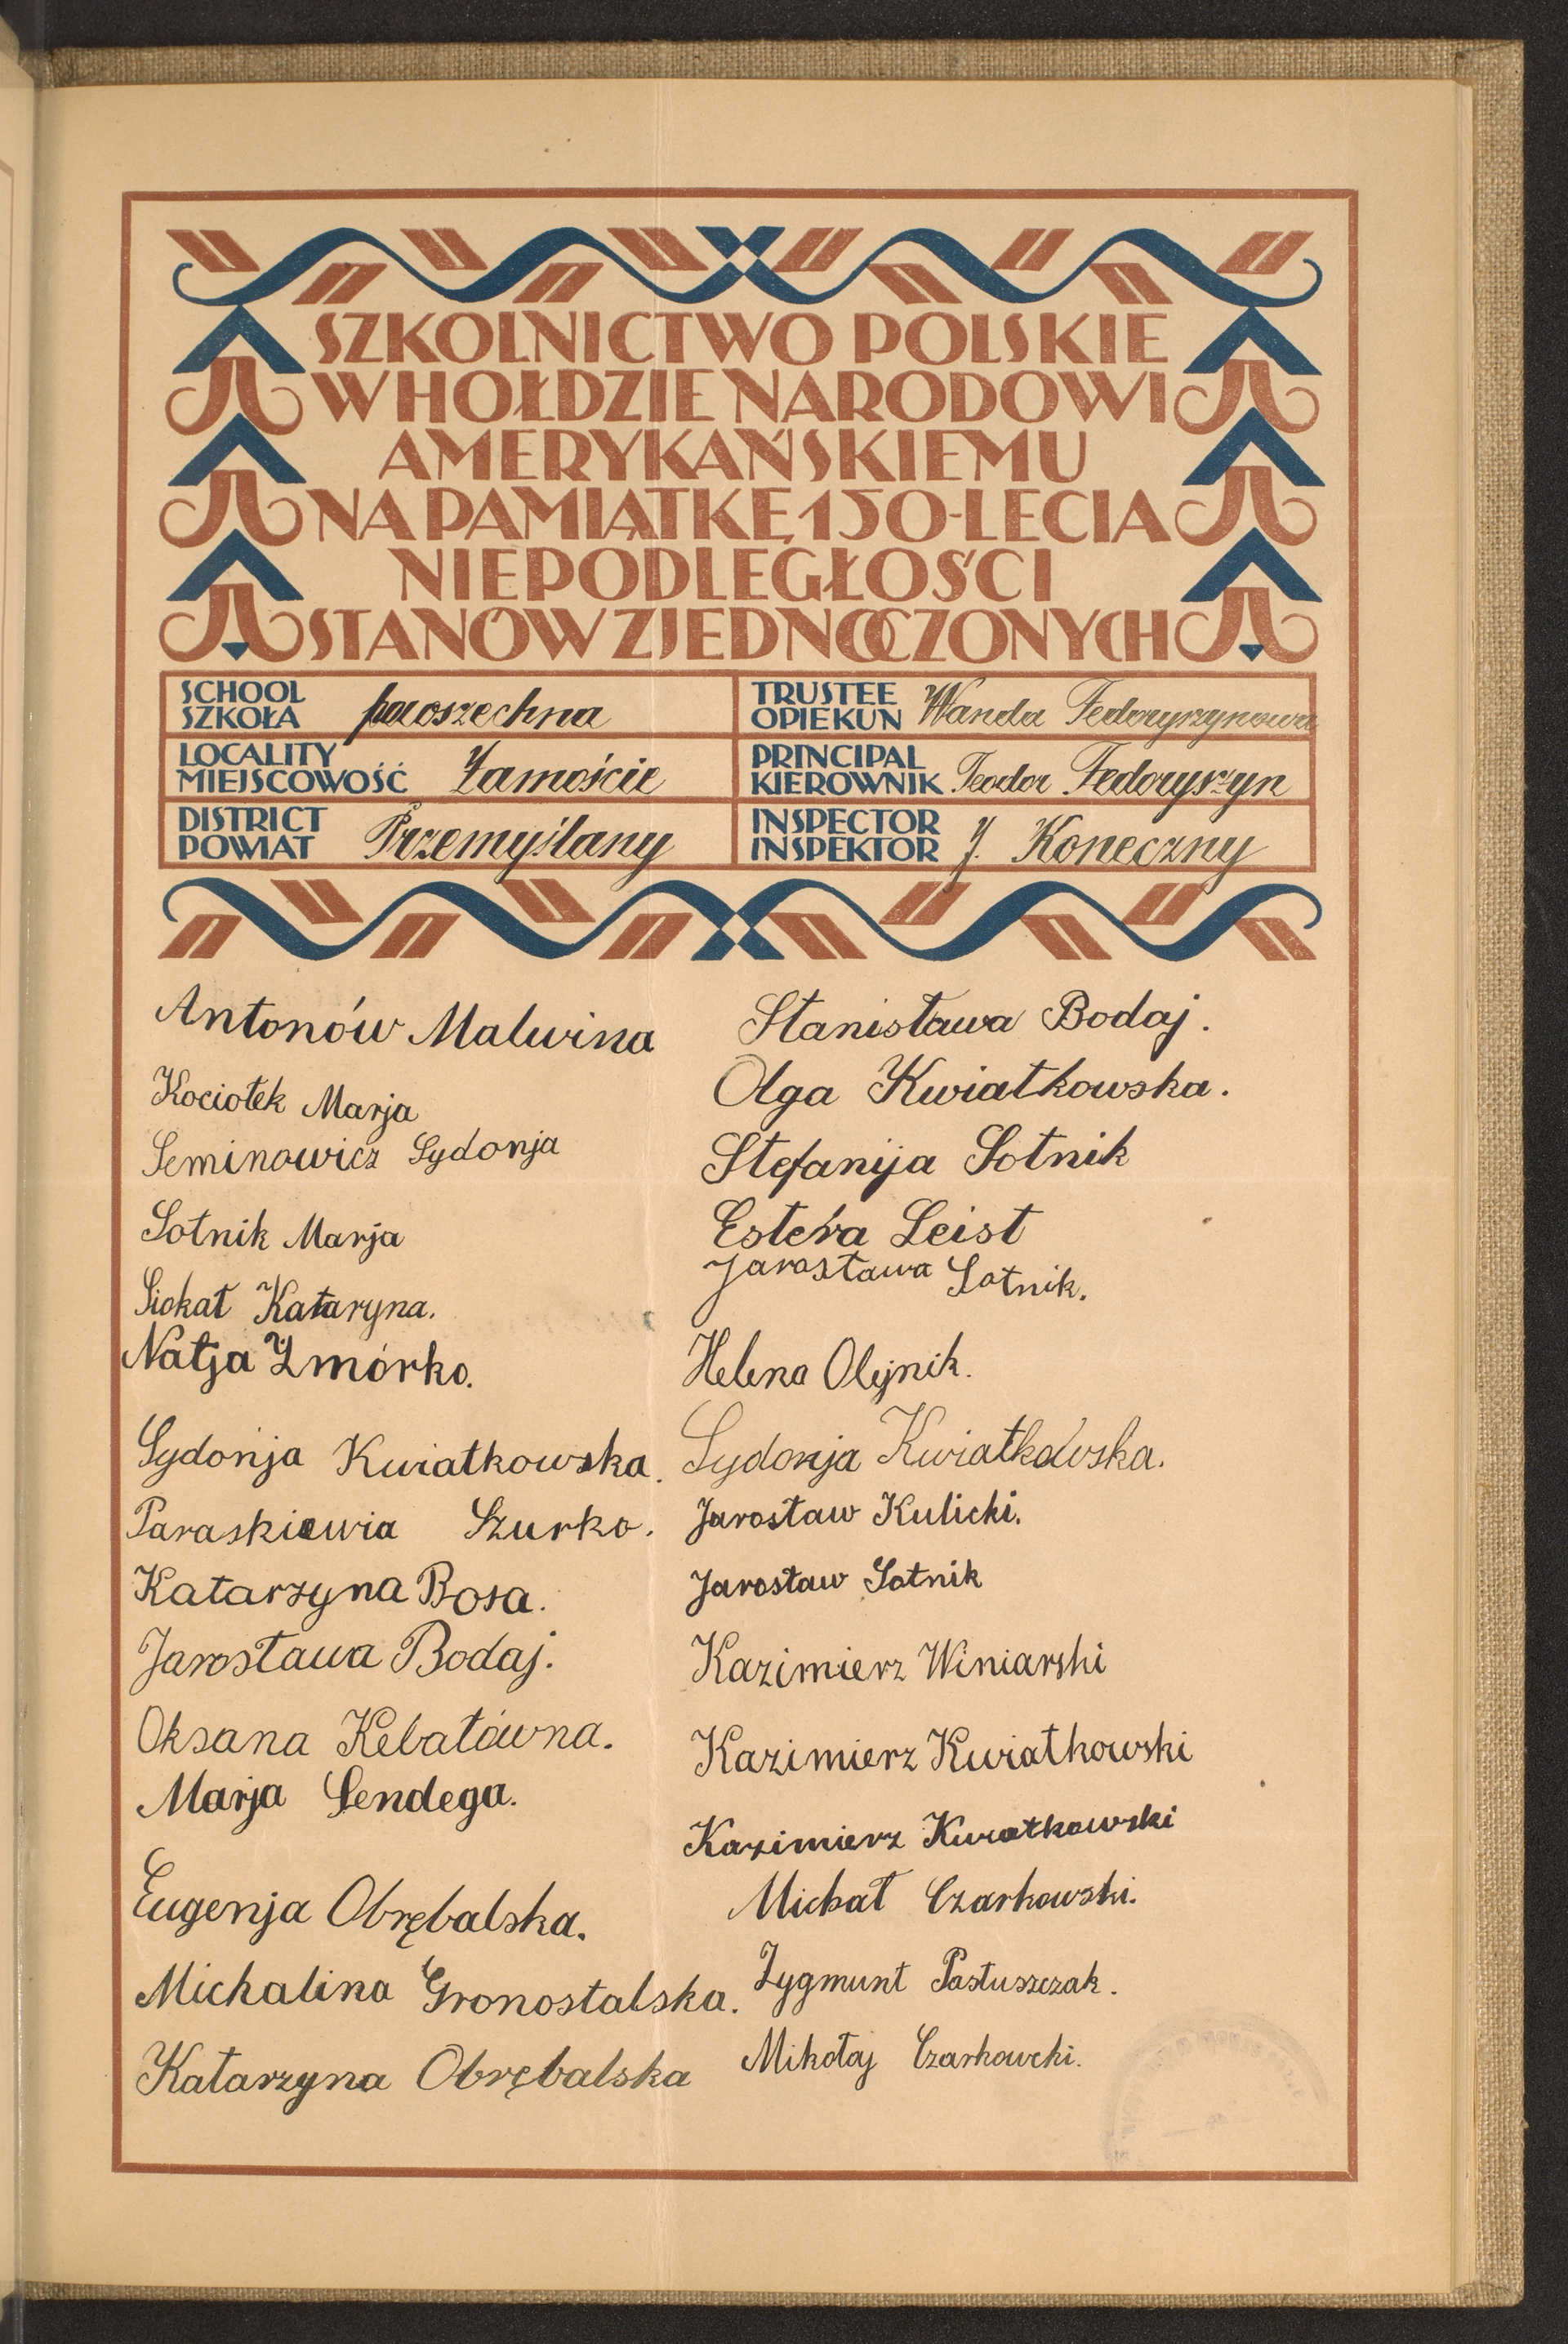 SZKOLNICTWO POLSKIE
W HOŁDZIE NARODOWI
AMERYKAŃSKIEMU
NA PAMIĄTKĘ 150-LECIA
NIEPODLEGŁOŚCI
STANÓW ZJEDNOCZONYCH
SCHOOL
SZKOŁA powszechna
TRUSTEE
OPIEKUN Wanda Fedoryszynowa
LOCALITY
MIEJSCOWOŚĆ Zamoście
PRINCIPAL
KIEROWNIK Teodor Fedoryszyn
DISTRICT
POWIAT Przemyślany
INSPECTOR
INSPEKTOR J. Koneczny
Antonów Malwina
Kociołek Marja
Seminowicz Sydonja
Sotnik Marja
Siokał Kataryna.
Natja Żmórko.
Sydonja Kwiatkowska.
Paraskiewia Szurko.
Katarzyna Bosa.
Jarosława Bodaj.
Oksana Kebałówna.
Marja Sendega.
Eugenja Obrębalska.
Michalina Gronostalska.
Katarzyna Obrębalska
Stanisława Bodaj.
Olga Kwiatkowska.
Stefanija Sotnik
Estera Leist
Jarosława Sotnik.
Helena Olejnik.
Sydonja Kwiatkowska.
Jarosław Kulicki.
Jarosław Sotnik
Kazimierz Winiarski
Kazimierz Kwiatkowski
Kazimierz Kwiatkowski
Michał Czarkowski.
Zygmunt Pastuszczak.
Mikołaj Czarkowcki.